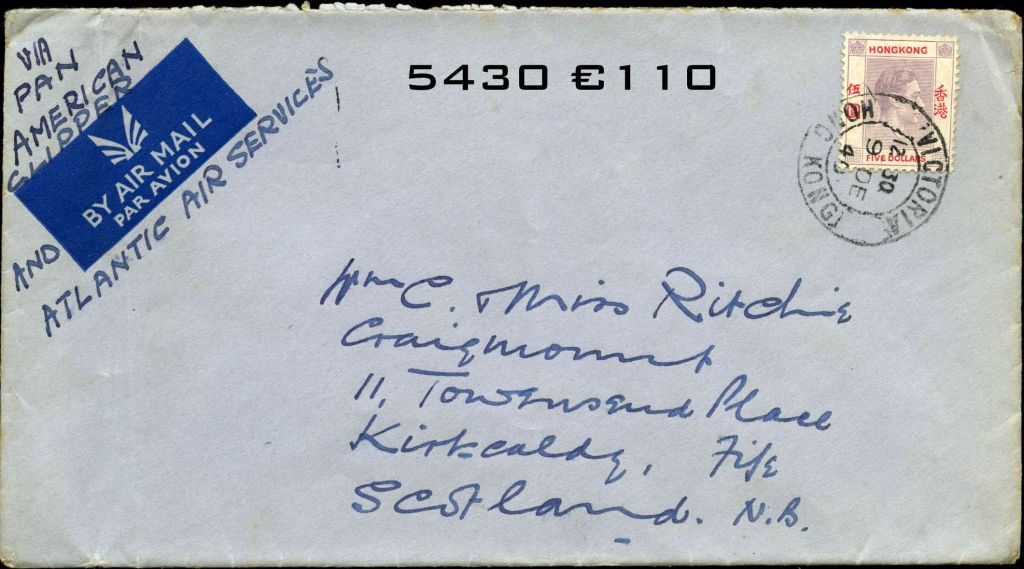 VIA
PAN
AMERICAN
CLIPPER
BY AIR MAIL
PAR AVION
AND
ATLANTIC AIR SERVICES
5430 €110
HONGKONG
香港
伍
FIVE DOLLARS
VICTORIA
HONG KONG
12 30
9 DE
40
C. & Miss Ritchie
Craigmount
11, Townsend Place
Kirkcaldy, Fife
Scotland. N.B.